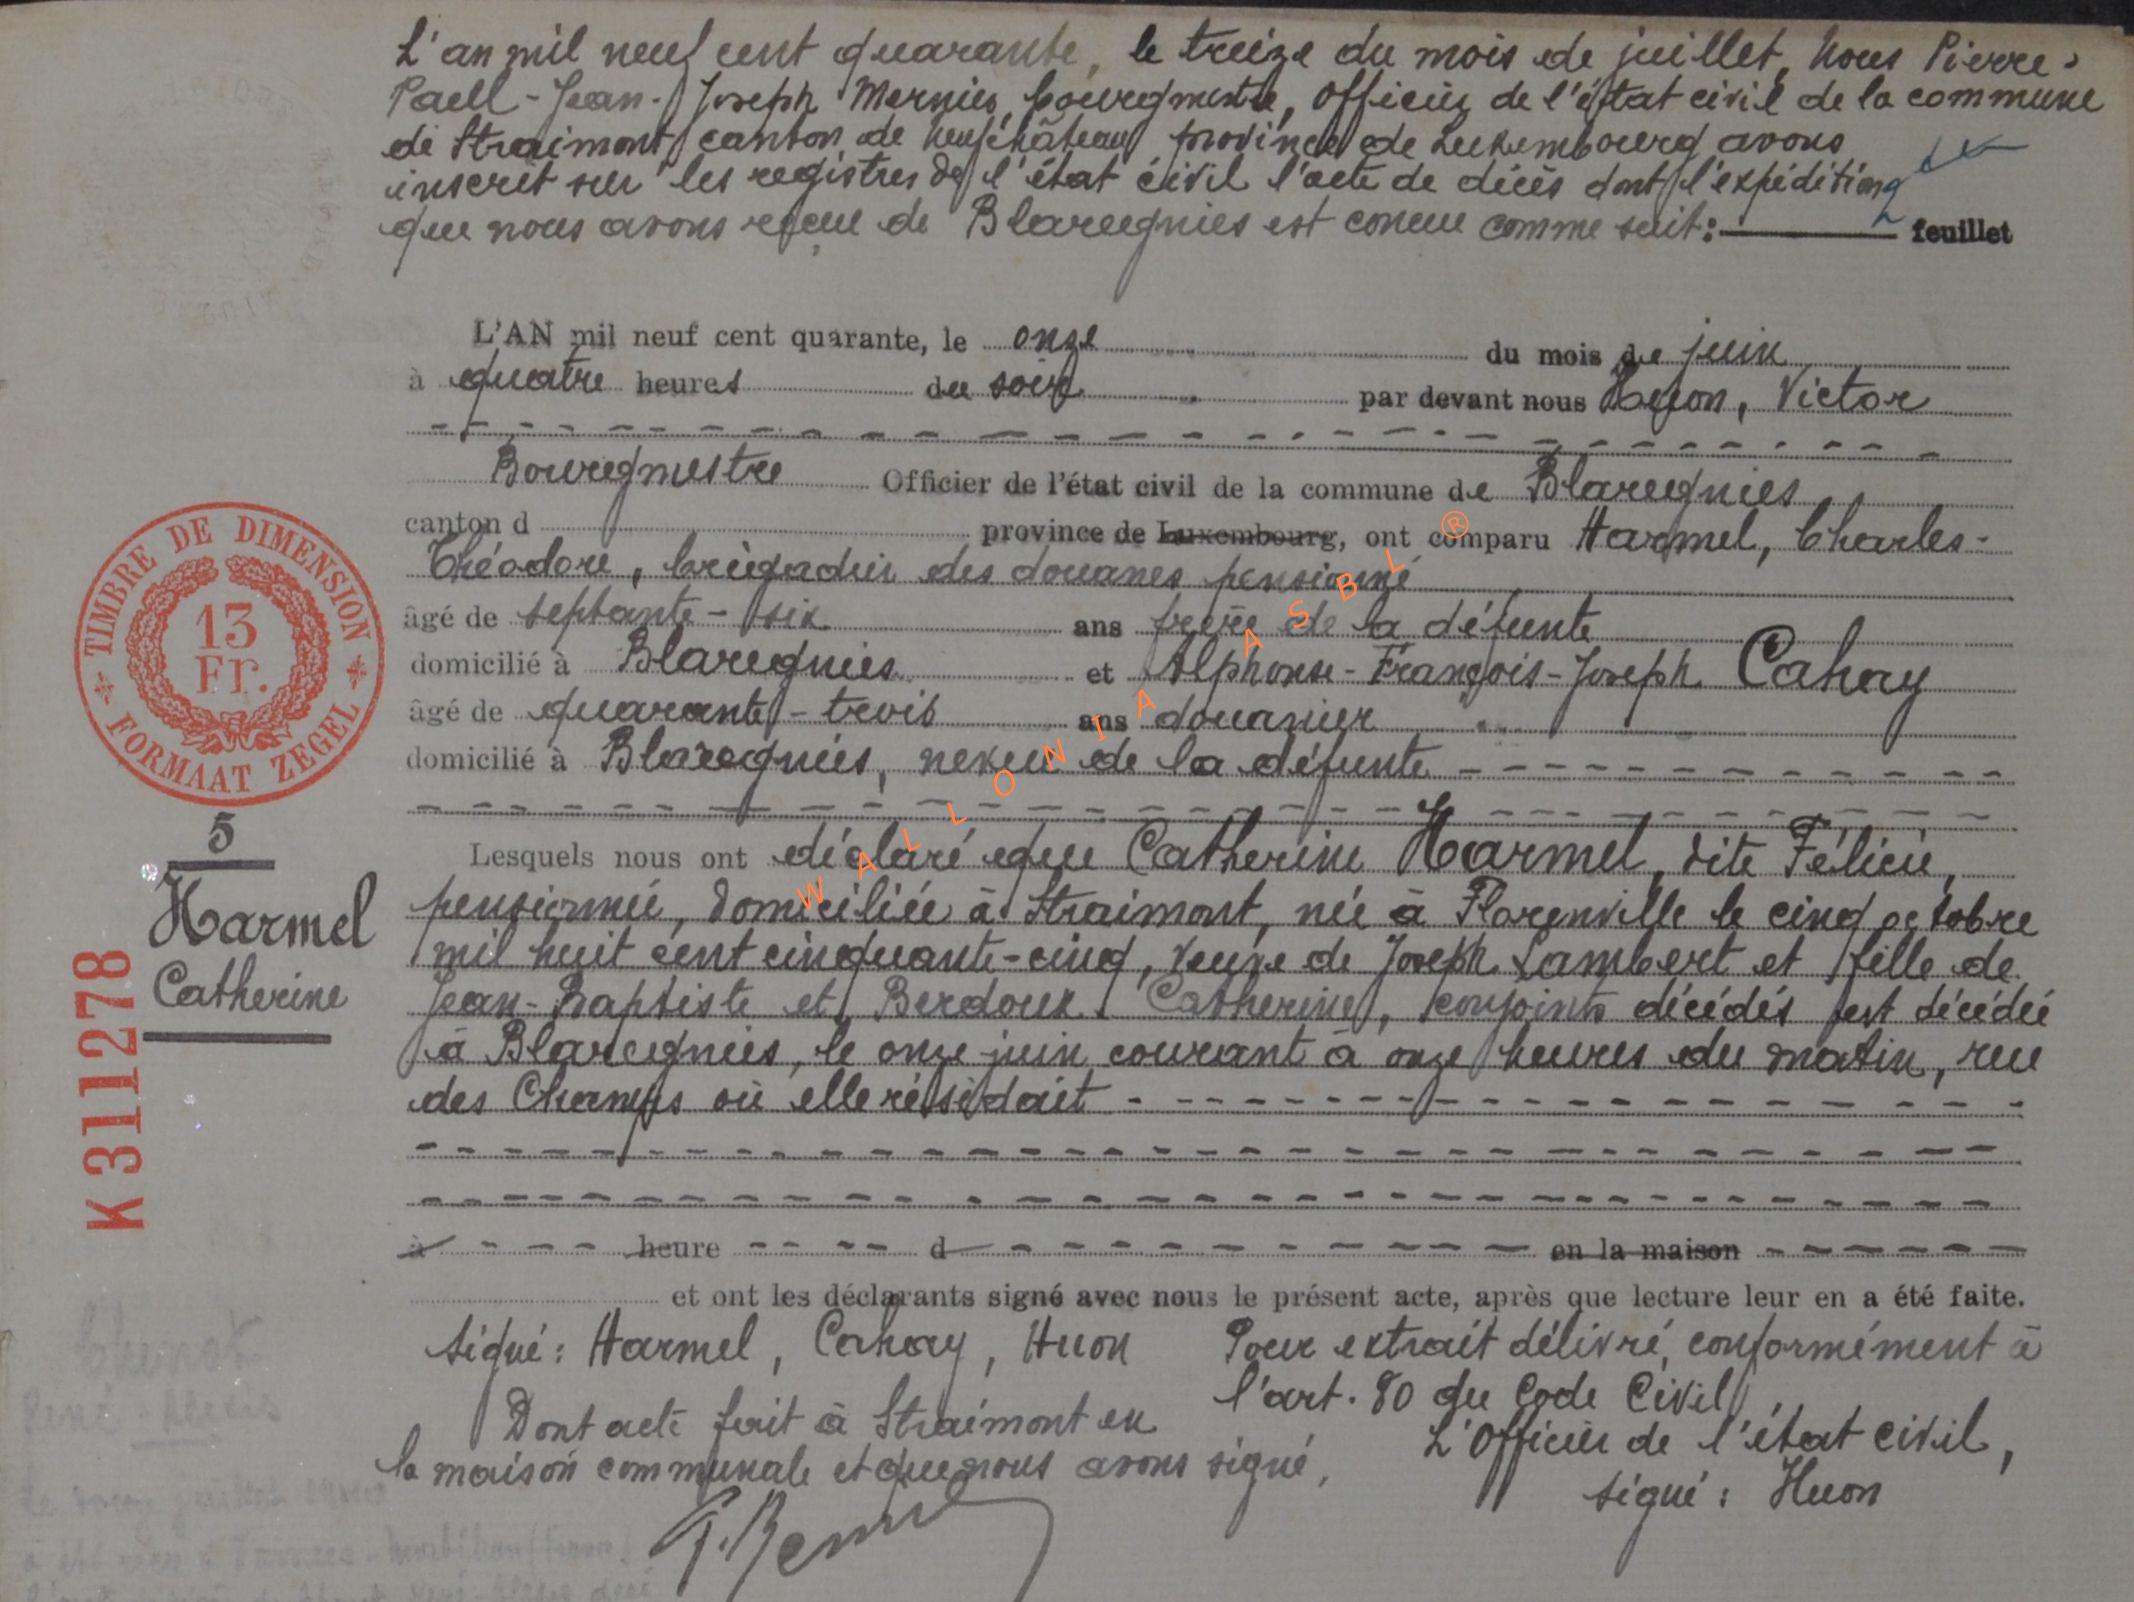 L'an mil neuf cent quarante, le treize du mois de juillet, Nous Pierre-
Paul-Jean-Joseph Mernier, bourgmestre, Officier de l'état civil de la commune
de Straimont, canton de Neufchâteau province de Luxembourg avons
inscrit sur les registres de l'état civil l'acte de décès dont l'expédition
que nous avons reçue de Blaregnies est conçue comme suit: feuillet
L'AN mil neuf cent quarante, le onze du mois de juin
à quatre heures du soir par devant nous Huon, Victor
Bourgmestre Officier de l'état civil de la commune de Blaregnies
canton d province de Luxembourg, ont comparu Harmel, Charles-
Théodore, brigadier des douanes pensionné
âgé de septante-six ans frère de la défunte
domicilié à Blaregnies et Alphonse-François-Joseph Cahay
âgé de quarante-trois ans douanier
domicilié à Blaregnies, neveu de la défunte
Lesquels nous ont déclaré que Catherine Harmel, dite Félicie,
pensionnée, domiciliée à Straimont, née à Florenville le cinq octobre
mil huit cent cinquante-cinq, veuve de Joseph Lambert et fille de
Jean-Baptiste et Berdoux Catherine, conjoints décédés est décédée
à Blaregnies, le onze juin courant à onze heures du matin, rue
des Champs où elle résidait
à heure d en la maison
et ont les déclarants signé avec nous le présent acte, après que lecture leur en a été faite.
Signé: Harmel, Cahay, Huon Pour extrait délivré, conformément à
l'art. 80 du Code Civil
Dont acte fait à Straimont en
L'Officier de l'état civil,
la maison communale et que nous avons signé,
signé: Huon
TIMBRE DE DIMENSION
13
Fr.
FORMAAT ZEGEL
5
Harmel
Catherine
K311278
WALLONIA ASBL ®